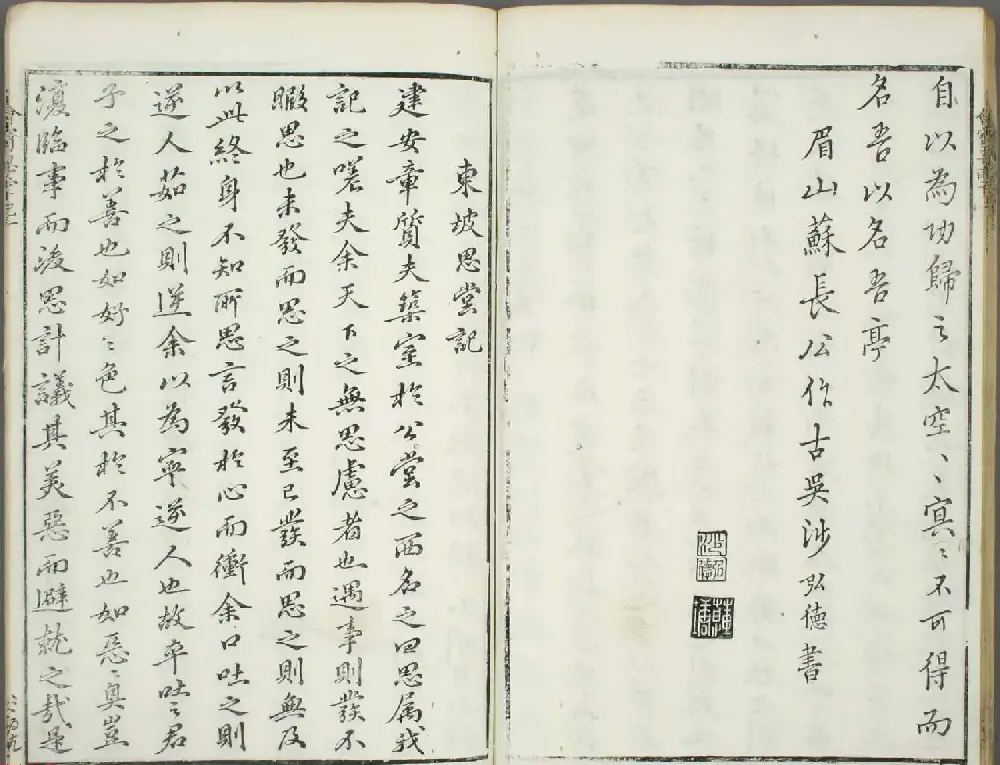 自以為功歸之太空〻冥〻不可得而
名吾以名吾亭
眉山蘇長公作古吳涉弘德書
東坡思堂記
建安章質夫築室於公堂之西名之曰思属我
記之嗟夫余天下之無思慮者也遇事則發不
暇思也未發而思之則未至已發而思之則無及
以此終身不知所思言發於心而衝余口吐之則
逆人茹之則逆余以為寧逆人也故卒吐之君
子之於善也如好〻色其於不善也如惡〻臭豈
復臨事而後思計議其美惡而避就之哉是